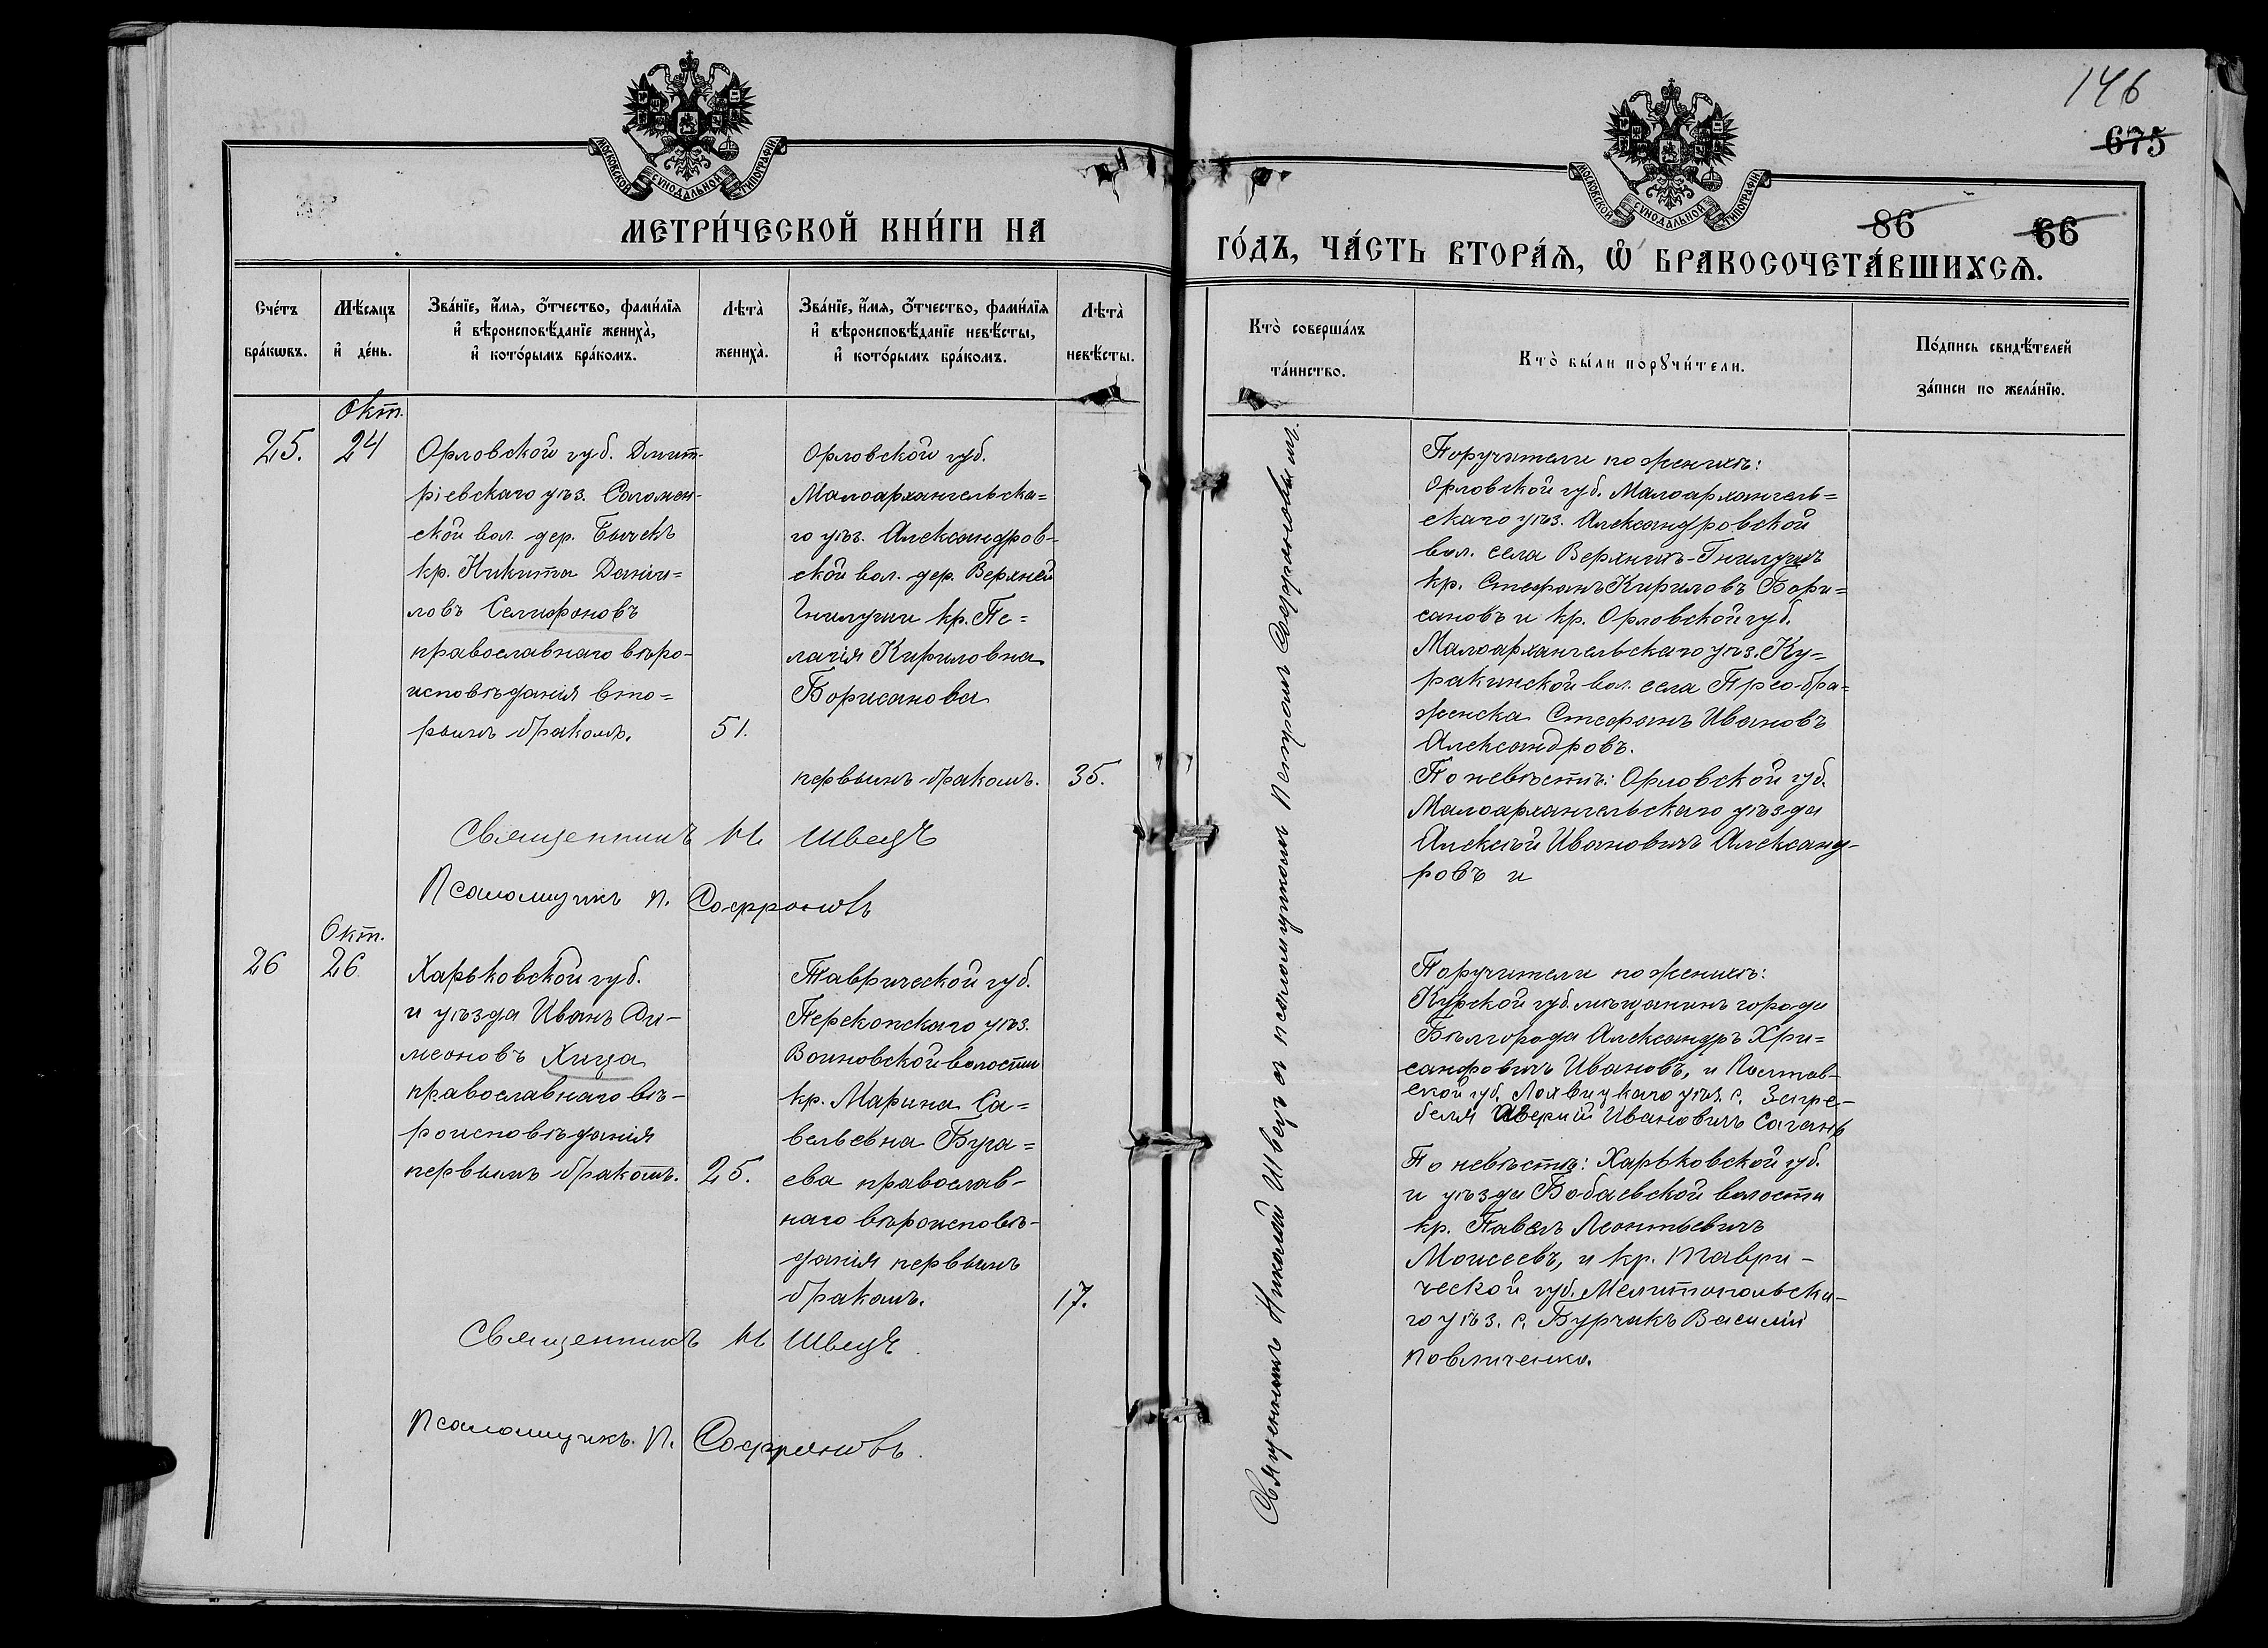 146
675
МОСКОВСКОЙ СѴНОДАЛЬНОЙ ТИПОГРАФІИ
МОСКОВСКОЙ СѴНОДАЛЬНОЙ ТИПОГРАФІИ
86 66
МЕТРИ́ЧЕСКОЙ КНИ́ГИ НА
ГО́ДЪ, ЧА́СТЬ ВТОРА́Ѧ, Ѡ҆ БРАКОСОЧЕТА́ВШИХСѦ.
Сче́тъ
бра́кѡвъ.
Мѣ́сяцъ
и҆ де́нь.
Зва́нїе, и҆́мя, ѻ҆́тчество, фами́лїя
и҆ вѣроисповѣ́данїе жениха̀,
и҆ кото́рымъ бра́комъ.
Лѣта̀
жениха̀.
Зва́нїе, и҆́мя, ѻ҆́тчество, фами́лїя
и҆ вѣроисповѣ́данїе невѣ́сты,
и҆ кото́рымъ бра́комъ.
Лѣта̀
невѣ́сты.
Кто̀ соверша́лъ
та́инство.
Кто̀ бы́ли порꙋчи́тели.
По́дпись свидѣ́телей
за́писи по жела́нїю.
25.
Окт.
24
Орловской губ. Дмит-
ріевскаго уѣз.
ской вол. дер.
кр. Никита Данiи=
ловъ Селифоновъ
православнаго вѣро-
исповѣданія вто=
рымъ бракомъ.
51.
Орловской губ.
Малоархангельска=
го уѣз. Александров-
ской вол. дер. Верхней
Гнилуши кр. Пе=
лагія Кириловна
Борисанова
первымъ бракомъ.
35.
Священникъ Н Швецъ
Псаломщикъ П. Соффроновъ
Священникъ Николай Швецъ съ псаломщикомъ Петромъ Соффроновымъ.
Поручители по женихѣ:
Орловской губ. Малоархангель=
скаго уѣз. Александровской
вол. села Верхнихъ-Гнилушъ
кр. Стефанъ Кириловъ Бори=
сановъ и кр. Орловской губ.
Малоархангельскаго уѣз. Ку=
ракинской вол. села Преобра=
женска Стефанъ Ивановъ
Александровъ.
По невѣстѣ: Орловской губ.
Малоархангельскаго уѣзда
Алексѣй Ивановичъ Александ-
ровъ и
26
Окт.
26
Харьковской губ.
и уѣзда Иванъ
меоновъ Хица
православнаго вѣ-
роисповѣданія
первымъ бракомъ.
25.
Таврической губ.
Перекопскаго уѣз.
Воиновской волости
кр. Марина Са=
вельевна Буга=
ева православ-
наго вѣроисповѣ-
данія первымъ
бракомъ.
17.
Священникъ Н Швецъ.
Псаломщикъ. П. Соффроновъ.
Поручители по женихѣ:
Курской губ. мѣщанинъ города
Бѣлгорода Александръ Хри=
санфовичъ Ивановъ, и Полтав-
ской губ. Лохвицкаго уѣз. с. Загре-
белья Аверкій Ивановичъ Саганъ
По невѣстѣ: Харьковской губ.
и уѣзда Бабаевской волости
кр. Павелъ Леонтьевичъ
Моисеевъ, и кр. Таври-
ческой губ. Мелитопольска-
го уѣз. с. Бурчакъ Василій
Повличенко.